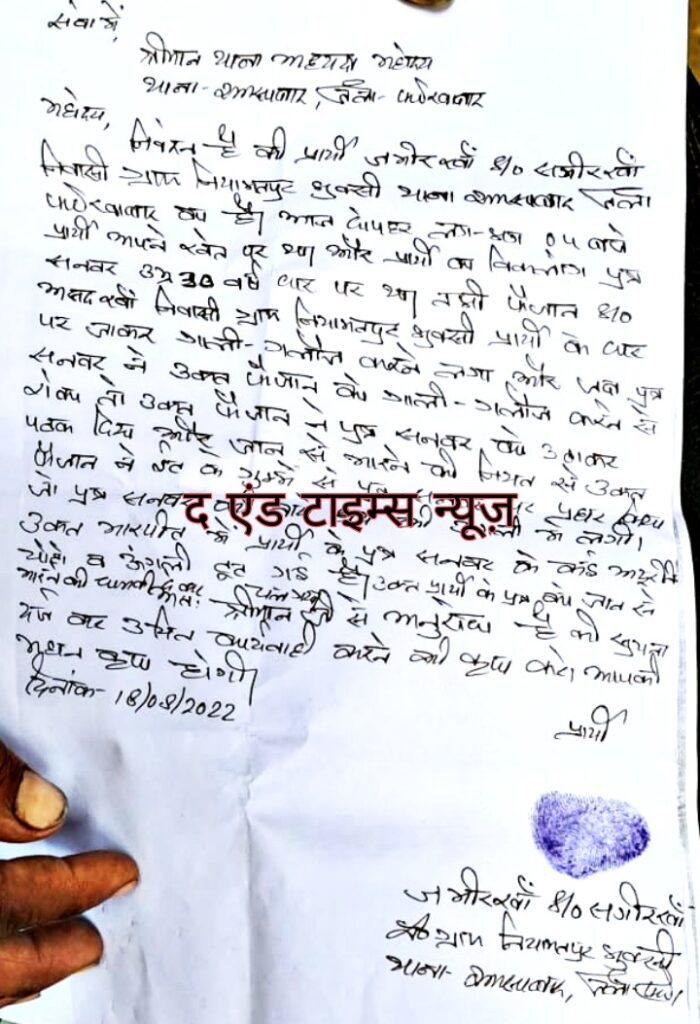 सेवा में,
श्रीमान थाना अध्यक्ष महोदय
थाना- शमसाबाद, जिला- फर्रुखाबाद
महोदय,
निवेदन है की प्रार्थी जमीर खाँ S/o सगीर खाँ
निवासी ग्राम नियामतपुर भुक्सी थाना शमसाबाद जिला
फर्रुखाबाद का है। आज दोपहर लग-भग 04 बजे
प्रार्थी अपने खेत पर था और प्रार्थी का विकलांग पुत्र
सनवर उम्र 30 वर्ष घार पर था तभी फैजान S/o
असद खाँ निवासी ग्राम नियामतपुर भुक्सी प्रार्थी के घार
पर जाकर गाली-गलौज करने लगा और जब पुत्र
सनवर ने उक्त फैजान को गाली-गलौज करने से
रोका तो उक्त फैजान ने पुत्र सनवर को उठाकर
पटक दिया और जान से मारने की नियत से उक्त
फैजान ने ईट के गुम्मे से पुत्र प्रहार किया
जो पुत्र सनवर में लगी।
द एंड टाइम्स न्यूज़
उक्त मारपीत में प्रार्थी के पुत्र सनवर के कई
चोटे व उंगली टूट गई है। उक्त प्रार्थी के पुत्र को जान से
मारने की धामकी देकर चला गया
अतः श्रीमान जी से अनुरोध है की सुचना
दर्ज कर उचित कार्यवाही करने की कृपा करे। आपकी
महान कृपा होगी।
दिनांक- 18/08/2022
प्रार्थी
जमीर खाँ S/o सगीर खाँ
ग्राम नियामतपुर भुक्सी
थाना- शमसाबाद, जिला